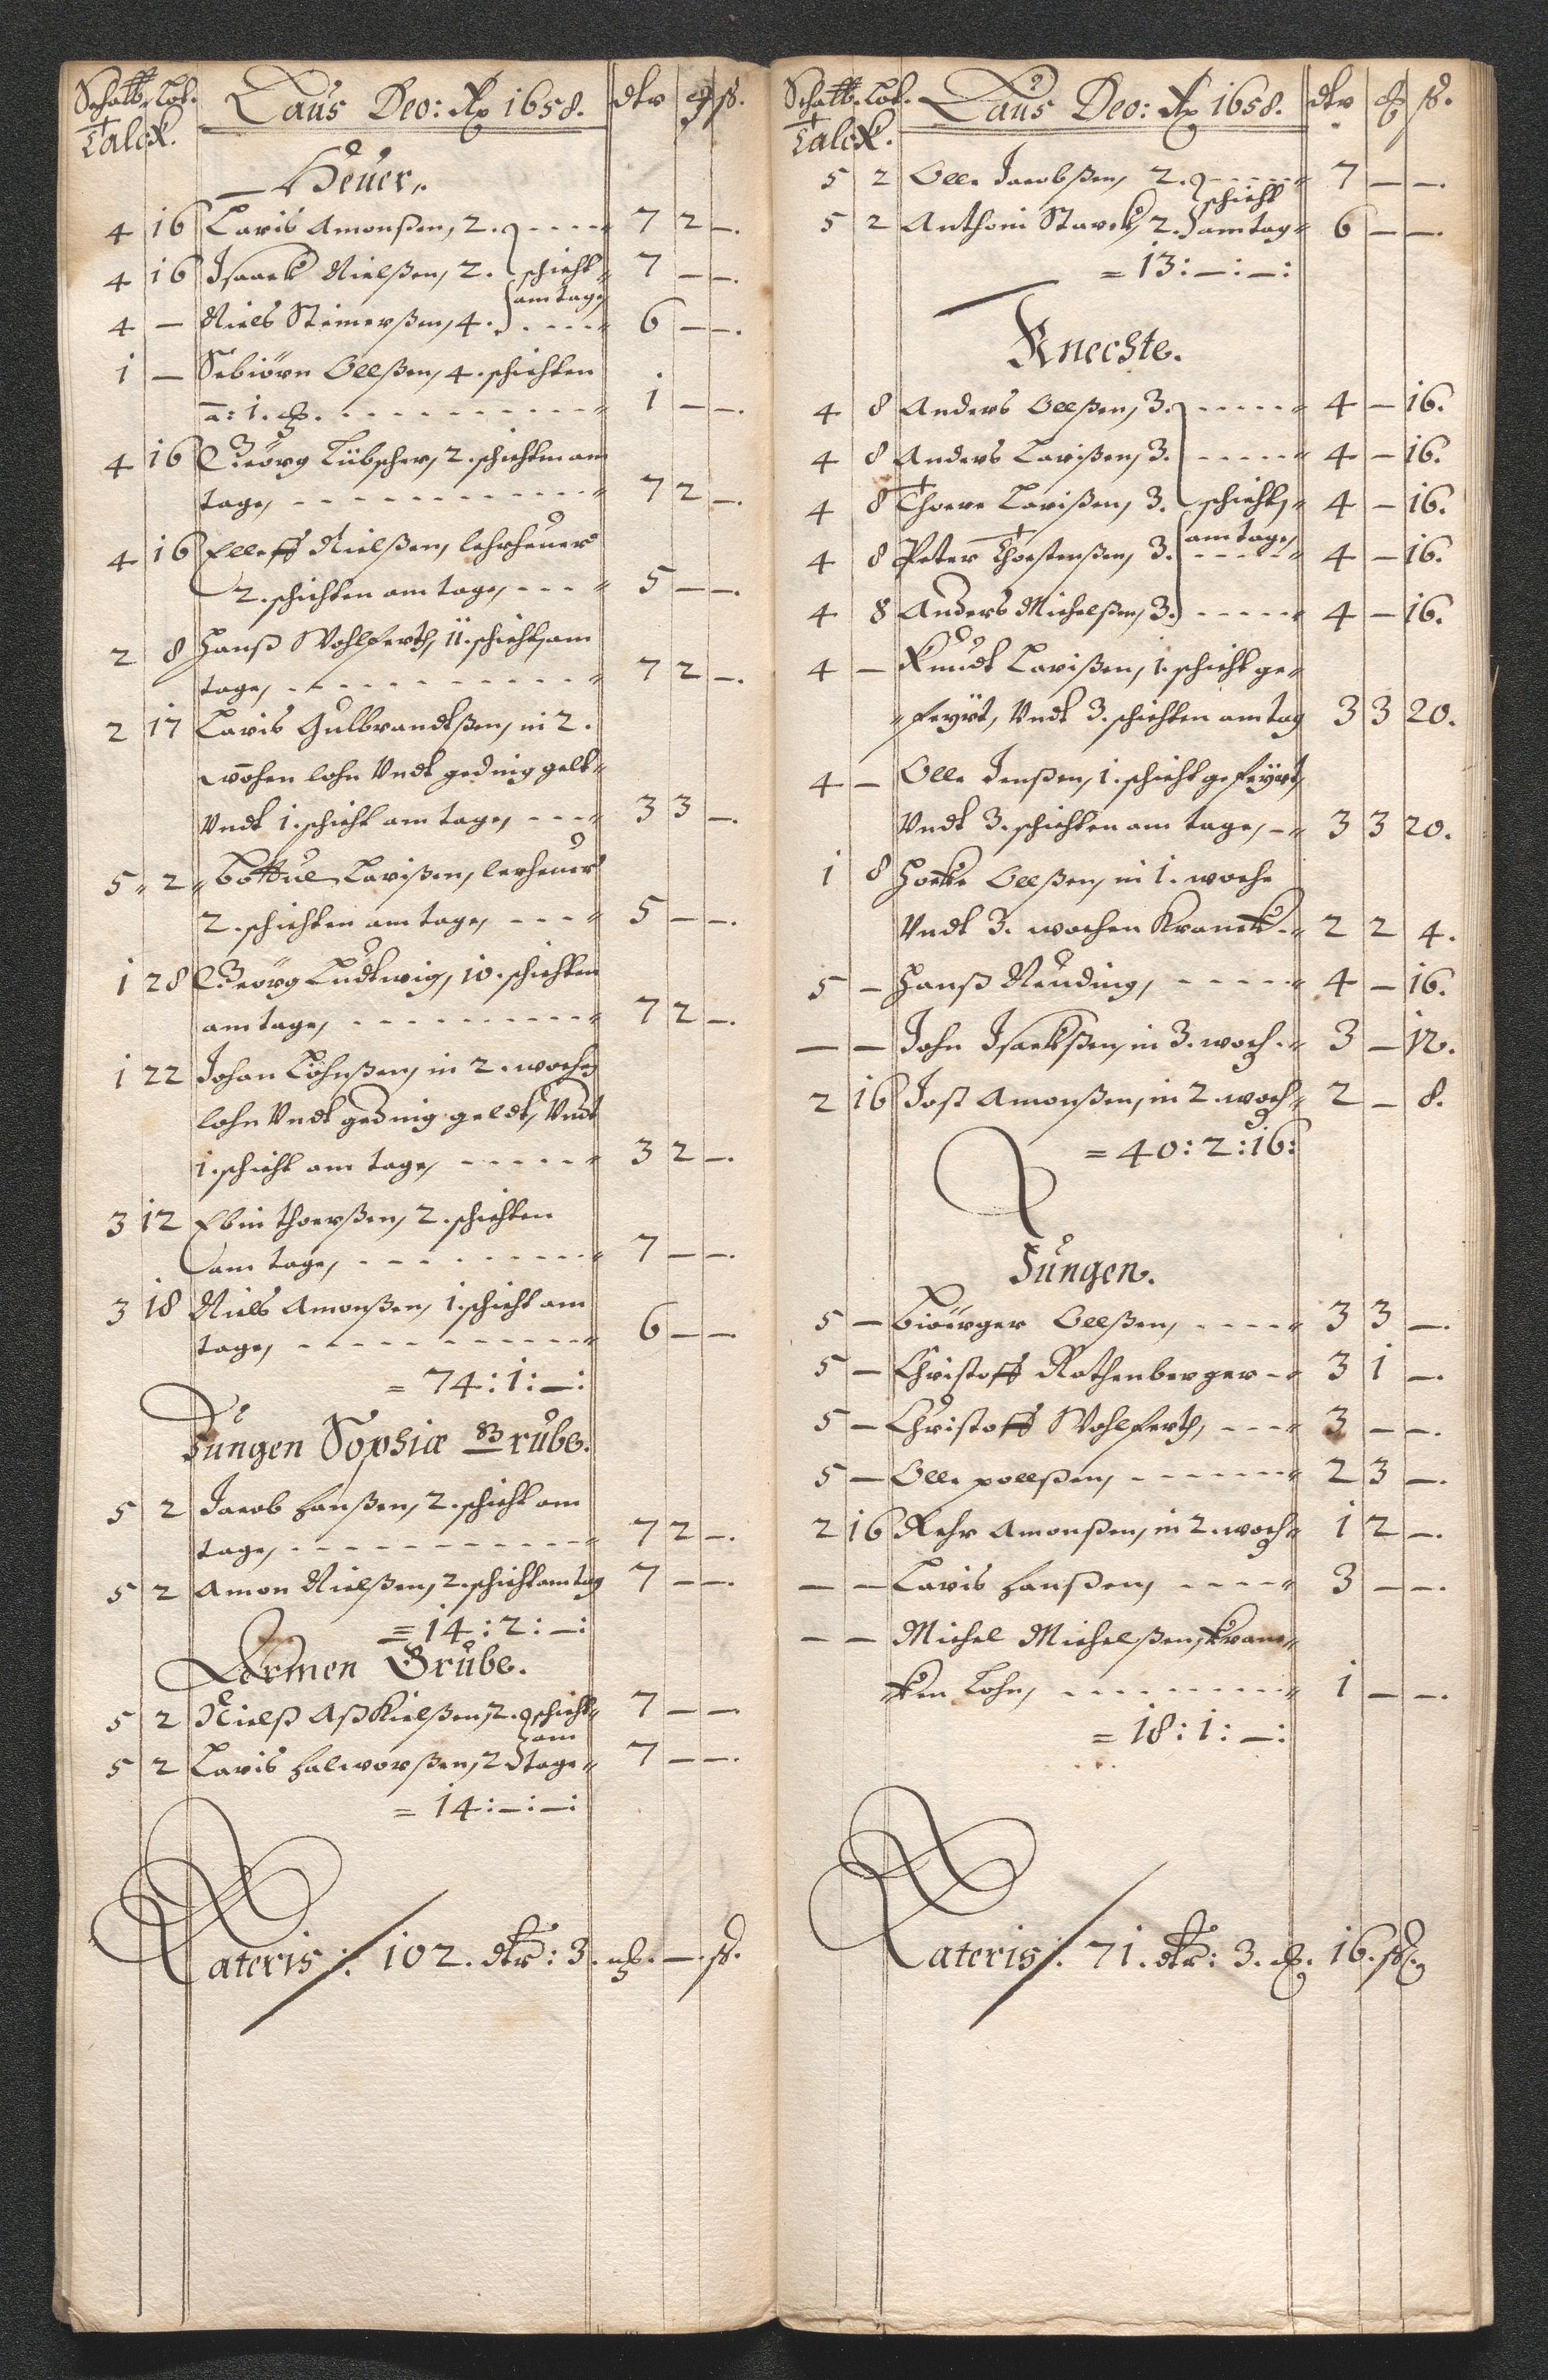 Schalk. Lot. Laus Deo: Ao 1658. dlr ort ß.
Talck.
Heuer,
4 16 Laris Amonßen, 2. 7 2 —.
4 16 Isaack Nielßen, 2. schicht 7 — —.
am tage,
4 — Niels Steinerßen, 4. 6 — —.
1 — Sebiörn Olßen, 4. schichten
a: 1. ort. 1 — —.
4 16 Georg Lübscher, 2. schichten am
tage, 7 2 —.
4 16 Elleff Nielßen, lehrheuer
2. schichten am tage, 5 — —.
2 8 Hanß Wohlferth, 11. schicht am
tage, 7 2 —.
2 17 Laris Gulbrandtßen, in 2.
wochen lohn Undt geding gelt
Undt 1. schicht am tage, 3 3 —.
5 2 Bottuel Larißen, lerheuer
2. schichten am tage, 5 — —.
1 28 Georg Ludtwig, 10. schichten
am tage, 7 2 —.
1 22 Johan Löhnßen, in 2. wochen
lohn Undt geding geldt, Undt
1. schicht am tage, 3 2 —.
3 12 Ebin Thorßen, 2. schichten
am tage, 7 — —.
3 18 Niels Amonßen, 1. schicht am
tage, 6 — —
= 74: 1: —:
Jungen Sophiæ Grube.
5 2 Jacob Hanßen, 2. schicht am
tage, 7 2 —.
5 2 Amon Nielßen, 2. schicht am tag 7 — —.
= 14: 2: —:
Armen Grube.
5 2 Nielß Aßkielßen, 2. schicht 7 — —
am
5 2 Laris Halworßen, 2 tage 7 — —.
= 14: —: —:
Lateris: 102. dlr: 3. ort. —. ß.
Schalk. Lot. Laus Deo: Ao 1658. dlr ort ß.
Talck.
5 2 Olle Jacobßen, 2. 7 — —.
schicht
5 2 Anthoni Starck, 2. am tag 6 — —.
= 13: —: —:
Knechte.
4 8 Anders Olßen, 3. 4 — 16.
4 8 Anders Larißen, 3. 4 — 16.
4 8 Thore Larißen, 3. schicht, 4 — 16.
am tage,
4 8 Peter Thorstenßen, 3. 4 — 16.
4 8 Anders Michelßen, 3. 4 — 16.
4 — Knudt Larißen, 1. schicht ge-
feyrt, Undt 3. schichten am tag 3 3 20.
4 — Olle Jenßen, 1. schicht gefeyrt,
Undt 3. schichten am tage, 3 3 20.
1 8 Olßen, in 1. woche
Undt 3. wochen Kranck 2 2 4.
5 — Hanß Neuding, 4 — 16.
— — John Isackßen, in 3. woch. 3 — 12.
2 16 Jost Amonßen, in 2. woch 2 — 8.
= 40: 2: 16:
Jungen.
5 — Biörger Olßen, 3 3 —.
5 — Christoff Rothenberger 3 1 —.
5 — Christoff Wohlferth, 3 — —.
5 — Olle pollßen, 2 3 —.
2 16 Rehr Amonßen, in 2. woch 1 2 —.
— — Laris Hanßen, 3 — —.
— — Michel Michelßen, kran-
ken Lohn, 1 — —.
= 18: 1: —:
Lateris: 71. dlr: 3. ort. 16. ß.